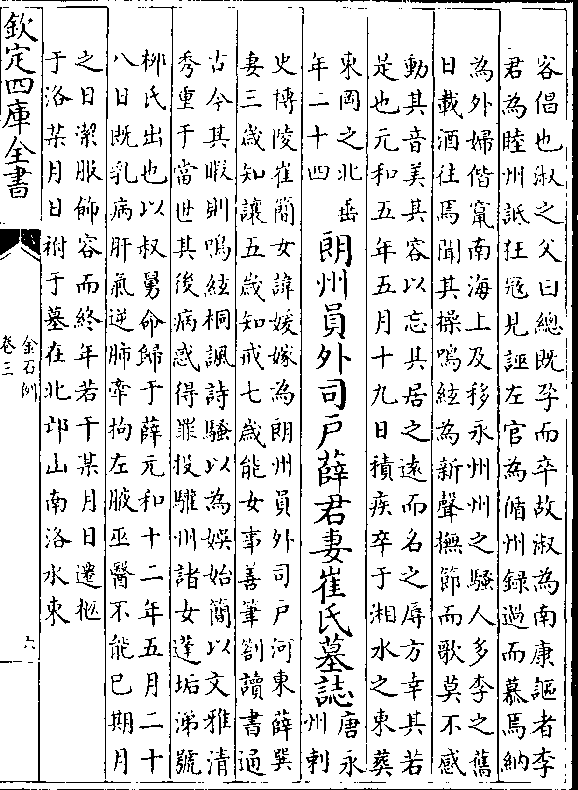 容倡也淑之父曰總既孕而卒故淑為南康謳者李
君為睦州詆狂冦見誣左官為循州録過而慕焉納
為外婦偕竄南海上及移永州州之騷人多李之舊
日載酒往焉聞其操鳴絃為新聲撫節而歌莫不感
動其音美其容以忘其居之逺而名之辱方幸其若
是也元和五年五月十九日積疾卒于湘水之東葬
東岡之北垂
年二十四
朗州員外司户薛君妻崔氏墓誌
唐永
州刺
史博陵崔簡女諱媛嫁為朗州員外司户河東薛巽
妻三歲知讓五歲知戒七歲能女事善筆劄讀書通
古今其暇則鳴絃桐諷詩騷以為娛始簡以文雅清
秀重于當世其後病惑得罪投驩州諸女蓬垢涕號
柳氏出也以叔舅命歸于薛元和十二年五月二十
八日既乳病肝氣逆肺牽拘左腋巫醫不能已期月
之日潔服飾容而終年若干某月日遷柩
于洛某月日祔于墓在北邙山南洛水東
欽定四庫全書
金石例
卷三
六